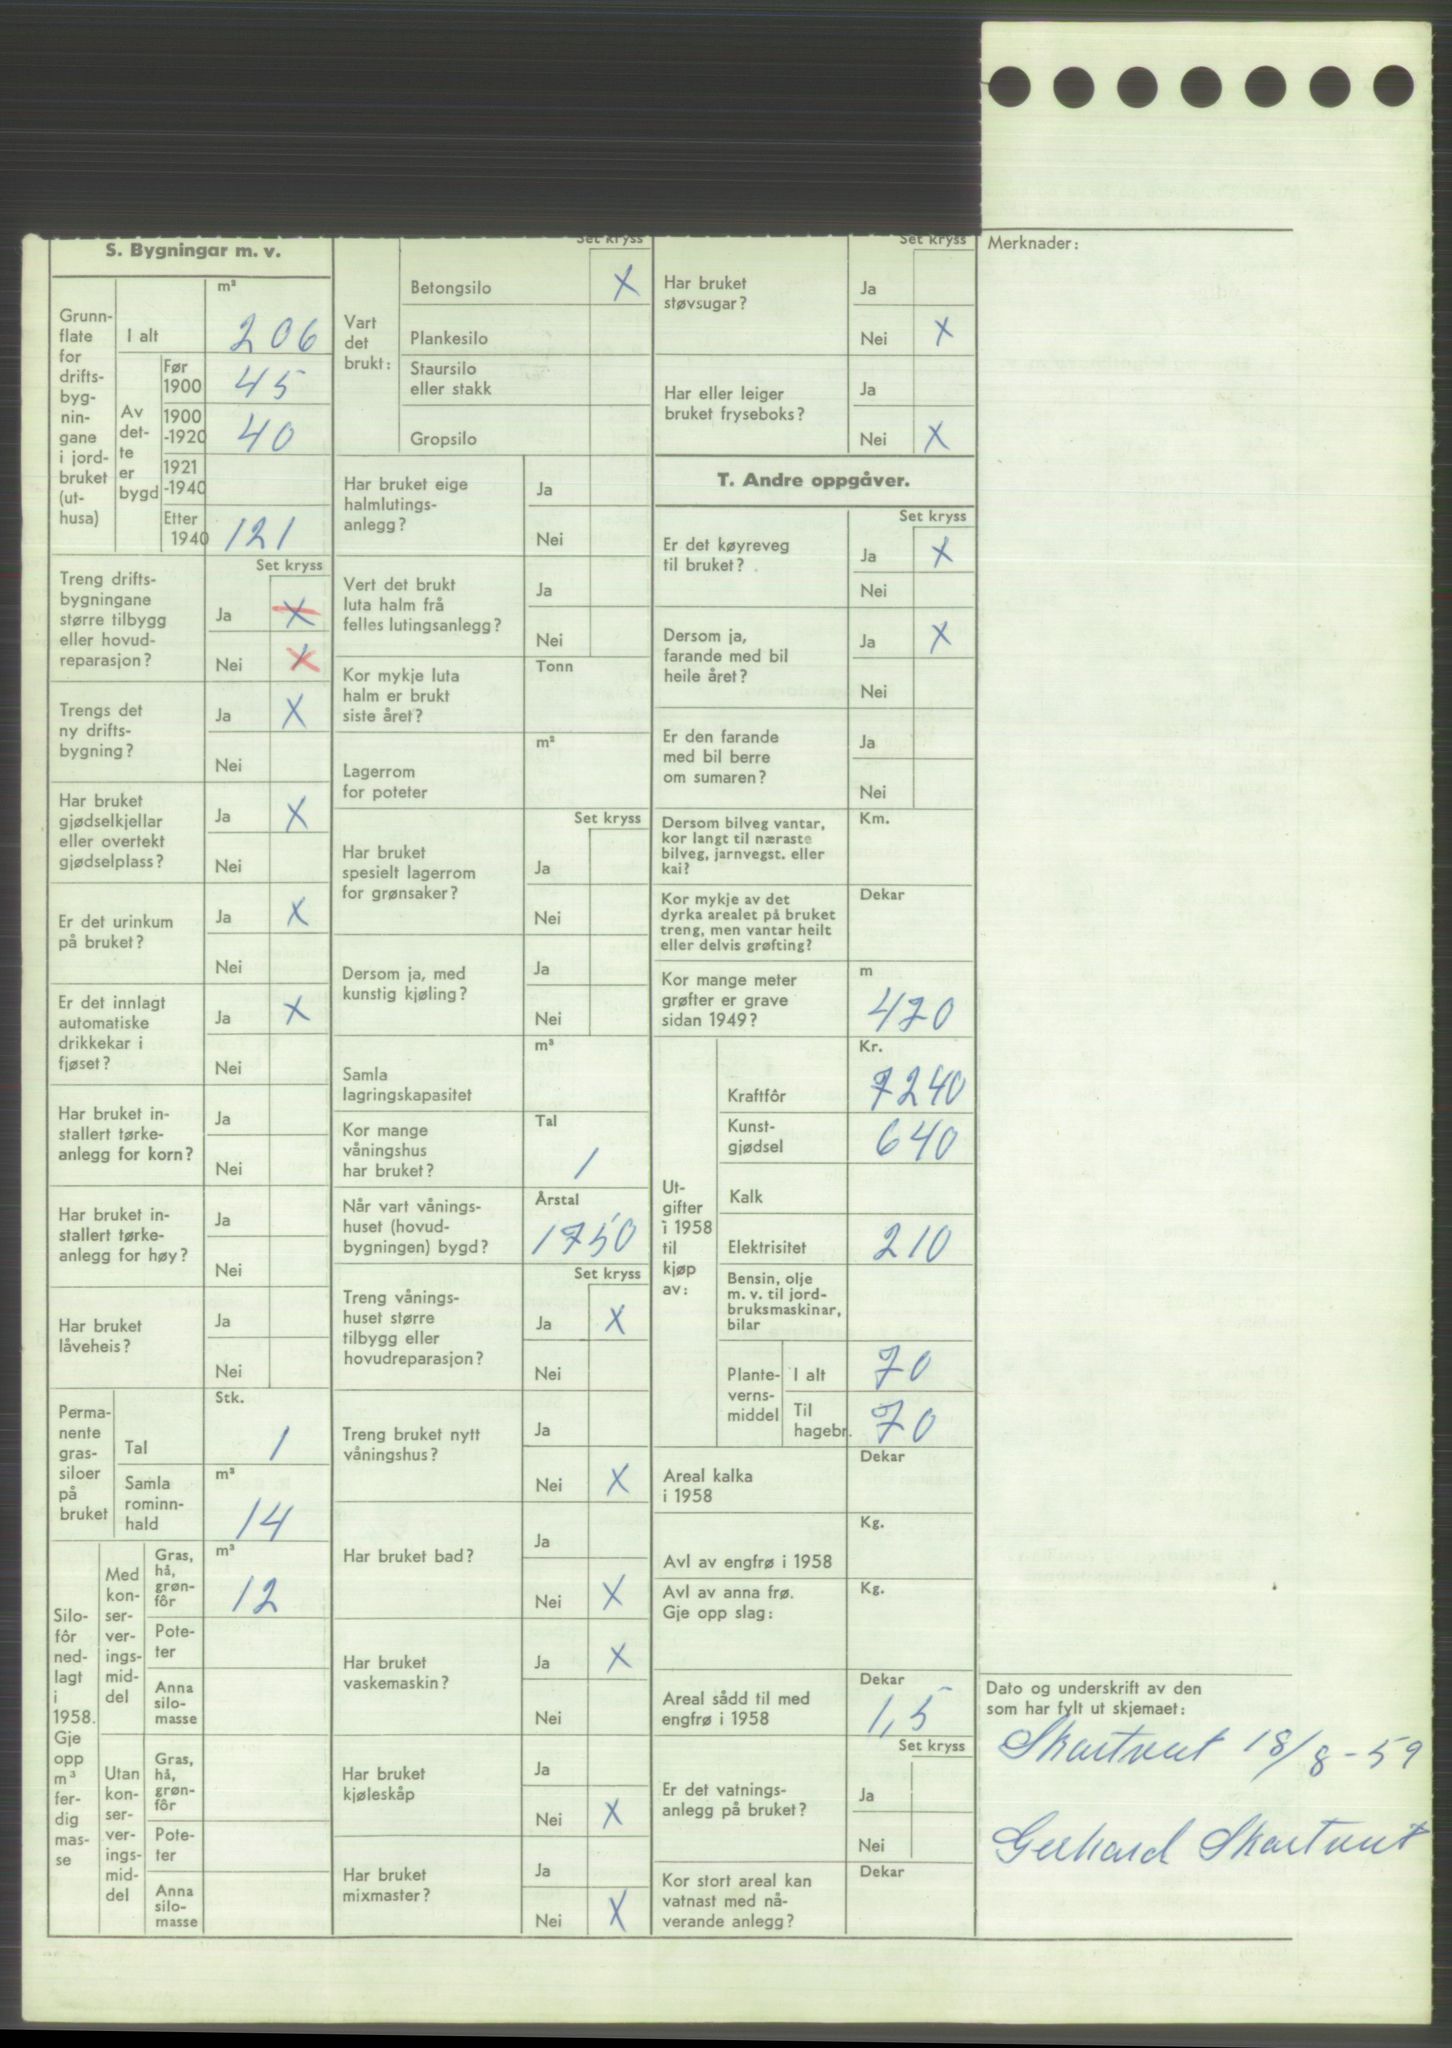 S. Bygningar m. v.
Grunn-
flate
for
drifts-
byg-
nin-
gane
i jord-
bruket
(ut-
husa)
I alt
m²
206
Av
det-
te
er
bygd
Før
1900
45
1900
-1920
40
1921
-1940
Etter
1940
121
Set kryss
Treng drifts-
bygningane
større tilbygg
eller hovud-
reparasjon?
Ja X
Nei X
Trengs det
ny drifts-
bygning?
Ja X
Nei
Har bruket
gjødselkjellar
eller overtekt
gjødselplass?
Ja X
Nei
Er det urinkum
på bruket?
Ja X
Nei
Er det innlagt
automatiske
drikkekar i
fjøset?
Ja X
Nei
Har bruket in-
stallert tørke-
anlegg for korn?
Ja
Nei
Har bruket in-
stallert tørke-
anlegg for høy?
Ja
Nei
Har bruket
låveheis?
Ja
Nei
Perma-
nente
gras-
siloer
på
bruket
Stk.
Tal 1
Samla
rominn-
hald
m³
14
Silo-
fôr
ned-
lagt
i
1958.
Gje
opp
m³
fer-
dig
mas-
se
Med
kon-
ser-
ver-
ings-
mid-
del
Gras,
hå,
grøn-
fôr
m³
12
Pote-
ter
Anna
silo-
masse
Utan
kon-
ser-
ver-
ings-
mid-
del
Gras,
hå,
grøn-
fôr
Pote-
ter
Anna
silo-
masse
Vart
det
brukt:
Set kryss
Betongsilo X
Plankesilo
Staursilo
eller stakk
Gropsilo
Har bruket eige
halmlutings-
anlegg?
Ja
Nei
Vert det brukt
luta halm frå
felles lutingsanlegg?
Ja
Nei
Kor mykje luta
halm er brukt
siste året?
Tonn
Lagerrom
for poteter
m²
Set kryss
Har bruket
spesielt lagerrom
for grønsaker?
Ja
Nei
Dersom ja, med
kunstig kjøling?
Ja
Nei
Samla
lagringskapasitet
m³
Kor mange
våningshus
har bruket?
Tal
1
Når vart vånings-
huset (hovud-
bygningen) bygd?
Årstal
1750
Set kryss
Treng vånings-
huset større
tilbygg eller
hovudreparasjon?
Ja X
Nei
Treng bruket nytt
våningshus?
Ja
Nei X
Har bruket bad?
Ja
Nei X
Har bruket
vaskemaskin?
Ja X
Nei
Har bruket
kjøleskåp
Ja
Nei X
Har bruket
mixmaster?
Ja
Nei X
Set kryss
Har bruket
støvsugar?
Ja
Nei X
Har eller leiger
bruket fryseboks?
Ja
Nei X
T. Andre oppgåver.
Set kryss
Er det køyreveg
til bruket?
Ja X
Nei
Dersom ja,
farande med bil
heile året?
Ja X
Nei
Er den farande
med bil berre
om sumaren?
Ja
Nei
Dersom bilveg vantar,
kor langt til næraste
bilveg, jarnvegst. eller
kai?
Km.
Kor mykje av det
dyrka arealet på bruket
treng, men vantar heilt
eller delvis grøfting?
Dekar
Kor mange meter
grøfter er grave
sidan 1949?
m
470
Ut-
gifter
i 1958
til
kjøp
av:
Kr.
Kraftfôr 7240
Kunst-
gjødsel 640
Kalk
Elektrisitet 210
Bensin, olje
m. v. til jord-
bruksmaskinar,
bilar
Plante-
verns-
middel
I alt 70
Til
hagebr. 70
Areal kalka
i 1958
Dekar
Avl av engfrø i 1958
Kg.
Avl av anna frø.
Gje opp slag:
Kg.
Areal sådd til med
engfrø i 1958
Dekar
1,5
Set kryss
Er det vatnings-
anlegg på bruket?
Ja
Nei
Kor stort areal kan
vatnast med nå-
verande anlegg?
Dekar
Merknader:
Dato og underskrift av den
som har fylt ut skjemaet:
Skartveit 18/8-59
Gerhard Skartveit